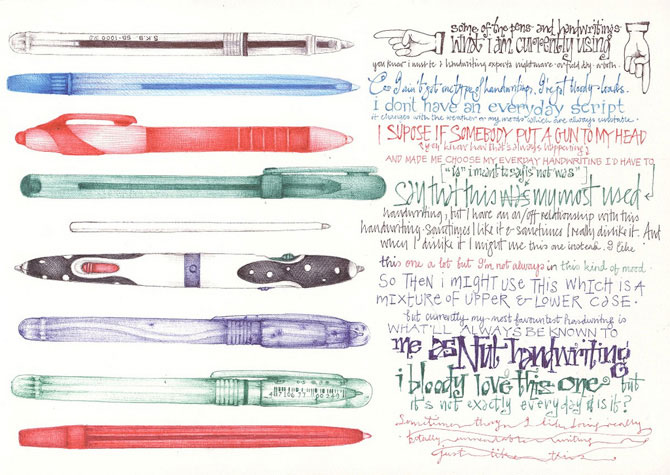 S.K.B. SB-1000
some of the pens and handwritings
what i am currently using
you know i wrote a handwriting experts nightmare or full day worth.
Cos I ain't got one type of handwriting, I've got bloody loads.
i dont have an everyday script
it changes with the weather or my moods which are always
I SUPOSE IF SOMEBODY PUT A GUN TO MY HEAD
(you know how that's always happening)
AND MADE ME CHOOSE MY EVERYDAY HANDWRITING I'D HAVE TO
["is" i meant to say is not was"]
say that this was my most used
handwriting, but I have an on/off relationship with this
handwriting. Sometimes I like it & sometimes I really dislike it. And
when I dislike it I might use this one instead. I like
this one a lot but I'm not always in this kind of mood.
SO THEN i MIGHT USE THIS WHICH IS A
MIXTURE OF UPPER & LOWER CASE.
but currently my most favouritest handwriting is
WHAT'LL ALWAYS BE KNOWN TO
me as Nut-handwriting
i bloody love this one but
it's not exactly everyday is it?
Sometimes though I like doing really
totally unreadable writing
just like this